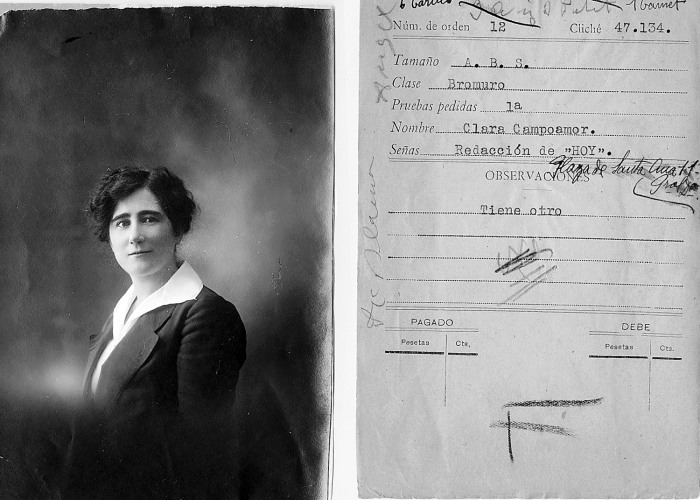 Núm. de orden 12 Cliché 47.134.
Tamaño A. B. S.
Clase Bromuro
Pruebas pedidas 1a
Nombre Clara Campoamor.
Señas Redacción de "HOY".
Plaza de Santa Ana
OBSERVACIONES
Tiene otro
PAGADO DEBE
Pesetas Cts, Pesetas Cts.